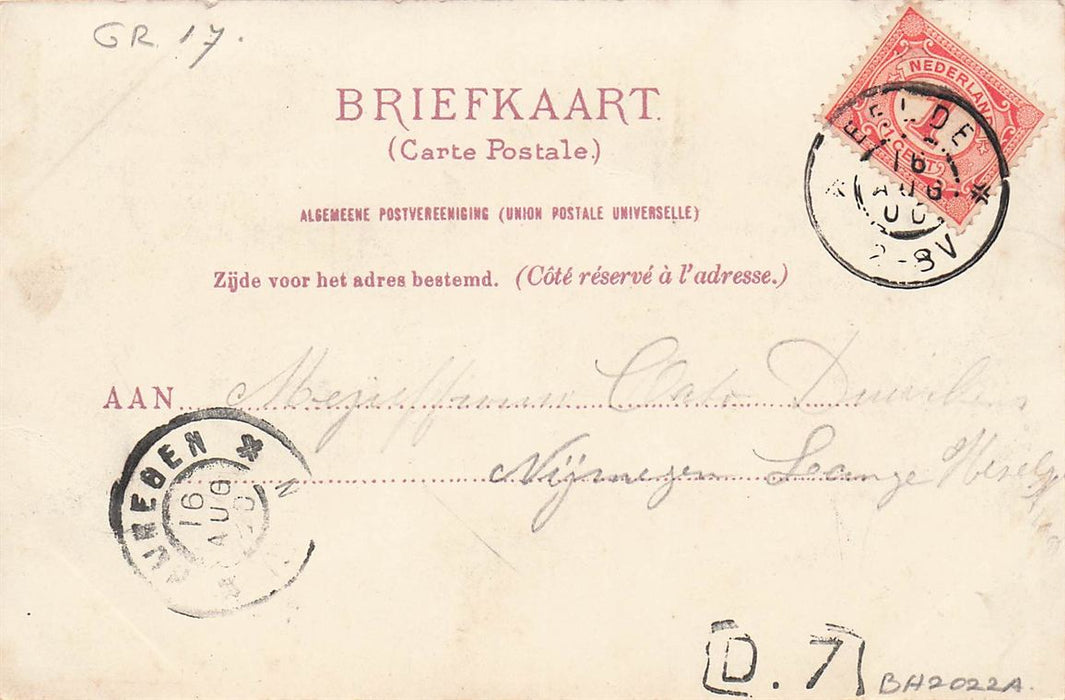 GR. 17.
NEDERLAND
1
CENT
EELDE
16
AUG.
00
2-8V
BRIEFKAART.
(Carte Postale.)
ALGEMEENE POSTVEREENIGING (UNION POSTALE UNIVERSELLE)
Zijde voor het adres bestemd. (Côté réservé à l'adresse.)
AAN Mejuffrouw Cato
Nijmegen Lange
16
AUG
D. 7
BH2022A